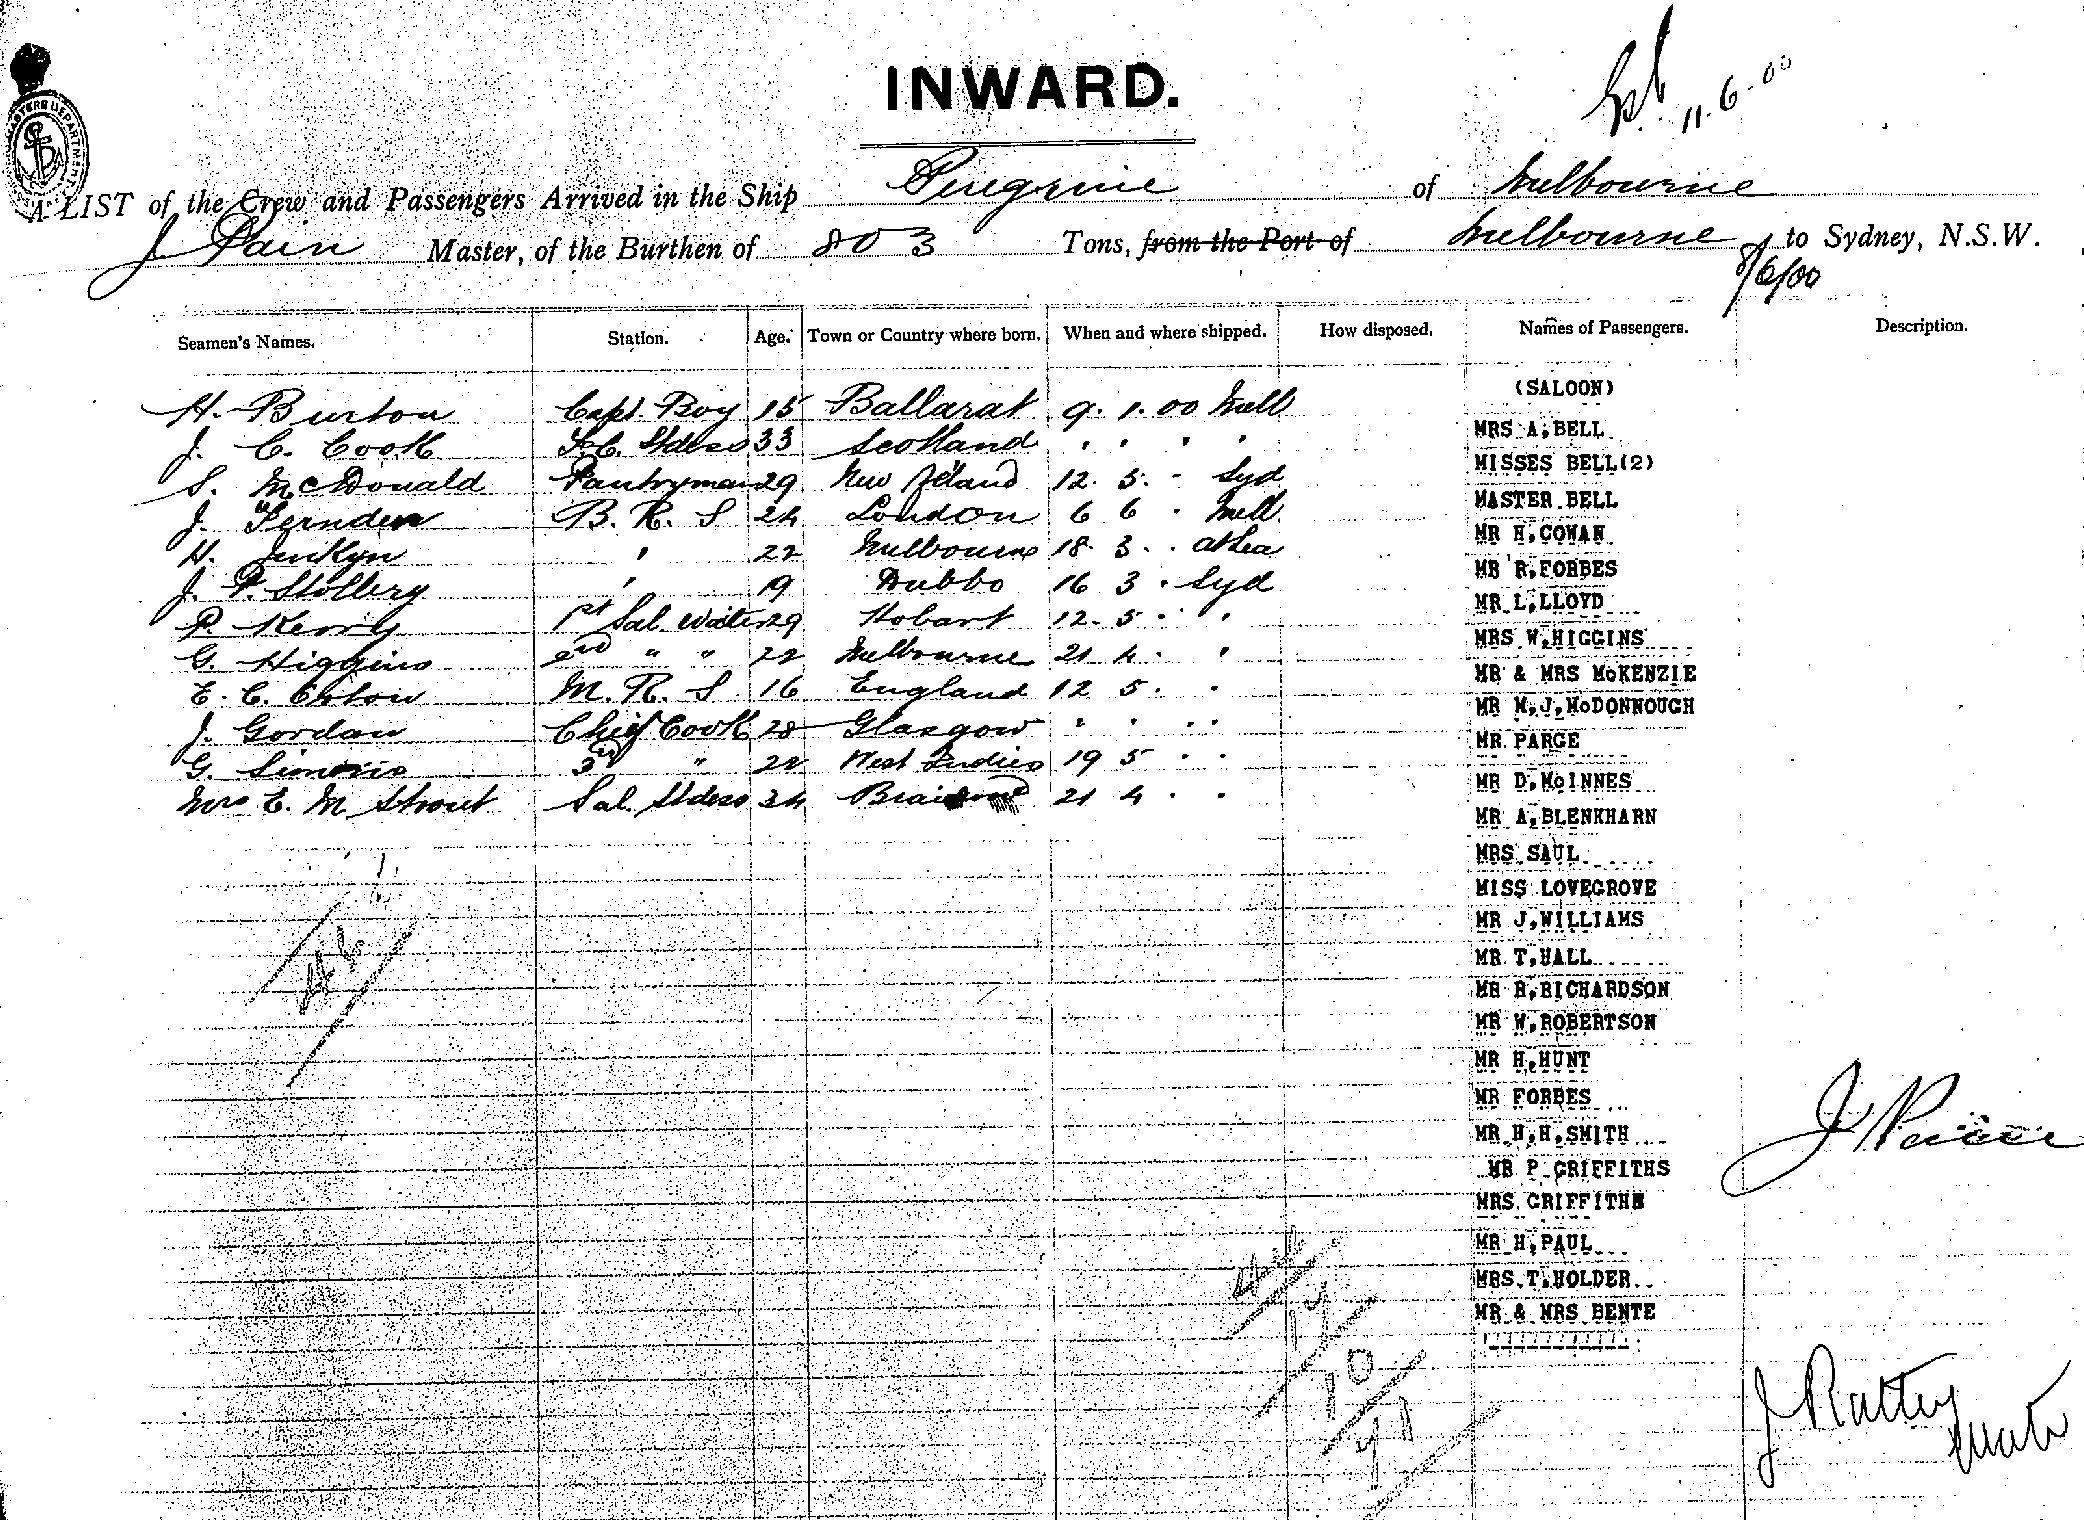 INWARD.
11.6.00
A LIST of the Crew and Passengers Arrived in the Ship Peregrine of Melbourne
J. Pain Master, of the Burthen of 803 Tons, from the Port of Melbourne to Sydney, N.S.W.
8/6/00
Seamen's Names. Station. Age. Town or Country where born. When and where shipped. How disposed. Names of Passengers. Description.
(SALOON)
H. Burton Capt. Boy 15 Ballarat 9. 1. 00 Melb
MRS A,BELL
J. C. Cook F.C. Stdess 33 Scotland " " " "
MISSES BELL(2)
S. McDonald Pantryman 29 New Zeland 12. 5. " Syd
MASTER BELL
J. Fernden B. R. S 24 London 6 6 " Melb.
MR H,COWAN
H. Jenkyn " 22 Melbourne 18. 3. " at Sea
MR R,FORBES
J. P. Stollery " 19 Dubbo 16 3 " Syd
MR L,LLOYD
P. Kerrig 1st Sal. Waiter 29 Hobart 12. 5 " "
MRS W,HIGGINS
G. Higgins 2nd " " 22 Melbourne 21 4 " "
MR & MRS McKENZIE
E. C. Orton M. R. S. 16 England 12 5. "
MR M,J,McDONNOUGH
J. Gordan Chief Cook 28 Glasgow " " " "
MR PARGE
G. Simons 3rd " 22 West Indies 19 5 " "
MR D,McINNES
Mrs E. M Strout Sal. Stdess 34 21 4 " "
MR A,BLENKHARN
MRS SAUL
MISS LOVEGROVE
MR J,WILLIAMS
MR T,HALL
MR R,RICHARDSON
MR W,ROBERTSON
MR H,HUNT
MR FORBES
MR H,H,SMITH
MR P GRIFFITHS
MRS GRIFFITHS
MR H,PAUL
MRS.T.HOLDER
MR & MRS BENTE
J Pain
J Rattey
Mate